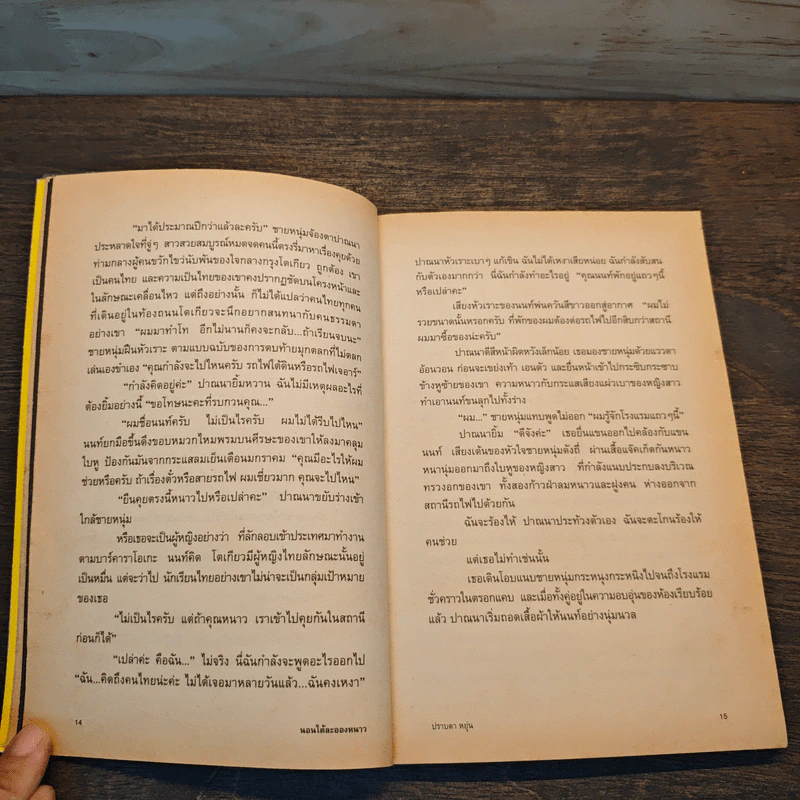 “มาได้ประมาณปีกว่าแล้วละครับ” ชายหนุ่มจ้องตาปาณนา
ประหลาดใจที่จู่ๆ สาวสวยสมบูรณ์หมดจดคนนี้ตรงรี่มาหาเรื่องคุยด้วย
ท่ามกลางผู้คนขวักไขว่นับพันของใจกลางกรุงโตเกียว ถูกต้อง เขา
เป็นคนไทย และความเป็นไทยของเขาคงปรากฏชัดบนโครงหน้าและ
ในลักษณะเคลื่อนไหว แต่ถึงอย่างนั้น ก็ไม่ได้แปลว่าคนไทยทุกคน
ที่เดินอยู่ในท้องถนนโตเกียวจะนึกอยากสนทนากับคนธรรมดา
อย่างเขา “ผมมาทำโท อีกไม่นานก็คงจะกลับ...ถ้าเรียนจบนะ”
ชายหนุ่มฝืนหัวเราะ ตามแบบฉบับของการตบท้ายมุกตลกที่ไม่ตลก
เลยเองเข้าเอง “คุณกำลังจะไปไหนครับ รถไฟใต้ดินหรือรถไฟเจอาร์”
“กำลังคิดอยู่ค่ะ” ปาณนายิ้มหวาน ฉันไม่มีเหตุผลอะไรที่
ต้องยิ้มอย่างนี้ “ขอโทษนะคะที่รบกวนคุณ...”
“ผมชื่อนนท์ครับ ไม่เป็นไรครับ ผมไม่ได้รีบไปไหน”
นนท์ยกมือขึ้นดึงขอบหมวกไหมพรมบนศีรษะของเขาให้ลงมาคลุม
ใบหู ป้องกันมันจากกระแสลมเย็นเดือนมกราคม “คุณมีอะไรให้ผม
ช่วยหรือครับ ถ้าเรื่องตั๋วหรือสายรถไฟ ผมเชี่ยวมาก คุณจะไปไหน”
“ยืนคุยตรงนี้หนาวไปหรือเปล่าคะ” ปาณนาขยับร่างเข้า
ใกล้ชายหนุ่ม
หรือเธอจะเป็นผู้หญิงอย่างว่า ที่ลักลอบเข้าประเทศมาทำงาน
ตามบาร์คาราโอเกะ นนท์คิด โตเกียวมีผู้หญิงไทยลักษณะนั้นอยู่
เป็นหมื่น แต่จะว่าไป นักเรียนไทยอย่างเขาไม่น่าจะเป็นกลุ่มเป้าหมาย
ของเธอ
“ไม่เป็นไรครับ แต่ถ้าคุณหนาว เราเข้าไปคุยกันในสถานี
ก่อนก็ได้”
“เปล่าค่ะ คือฉัน...” ไม่จริง นี่ฉันกำลังจะพูดอะไรออกไป
“ฉัน...คิดถึงคนไทยน่ะค่ะ ไม่ได้เจอมาหลายวันแล้ว...ฉันคงเหงา”
14
นอนใต้ละอองหนาว
ปาณนาหัวเราะเบาๆ แก้เขิน ฉันไม่ได้เหงาเสียหน่อย ฉันกำลังสับสน
กับตัวเองมากกว่า นี่ฉันกำลังทำอะไรอยู่ “คุณนนท์พักอยู่แถวๆนี้
หรือเปล่าคะ”
เสียงหัวเราะของนนท์พ่นควันสีขาวออกสู่อากาศ “ผมไม่
รวยขนาดนั้นหรอกครับ ที่พักของผมต้องต่อรถไฟไปอีกสิบกว่าสถานี
ผมมาซื้อของน่ะครับ”
ปาณนาตีสีหน้าผิดหวังเล็กน้อย เธอมองชายหนุ่มด้วยแววตา
อ้อนวอน ก่อนจะเขย่งเท้า เอนตัว และยื่นหน้าเข้าไปกระซิบกระซาบ
ข้างหูซ้ายของเขา ความหนาวกับกระแสเสียงแผ่วเบาของหญิงสาว
ทำเอานนท์ขนลุกไปทั้งร่าง
“ผม...” ชายหนุ่มแทบพูดไม่ออก “ผมรู้จักโรงแรมแถวๆนี้”
ปาณนายิ้ม “ดีจังค่ะ” เธอยื่นแขนออกไปคล้องกับแขน
นนท์ เสียงเต้นของหัวใจชายหนุ่มดังถี่ ผ่านเสื้อแจ็คเก็ตกันหนาว
หนานุ่มออกมาถึงใบหูของหญิงสาว ที่กำลังแนบประกบลงบริเวณ
ทรวงอกของเขา ทั้งสองก้าวฝ่าลมหนาวและฝูงคน ห่างออกจาก
สถานีรถไฟไปด้วยกัน
ฉันจะร้องไห้ ปาณนาประท้วงตัวเอง ฉันจะตะโกนร้องให้
คนช่วย
แต่เธอไม่ทำเช่นนั้น
เธอเดินโอบแนบชายหนุ่มกระหนุงกระหนิงไปจนถึงโรงแรม
ชั่วคราวในตรอกแคบ และเมื่อทั้งคู่อยู่ในความอบอุ่นของห้องเรียบร้อย
แล้ว ปาณนาเริ่มถอดเสื้อผ้าให้นนท์อย่างนุ่มนวล
ปราบดา หยุ่น
15